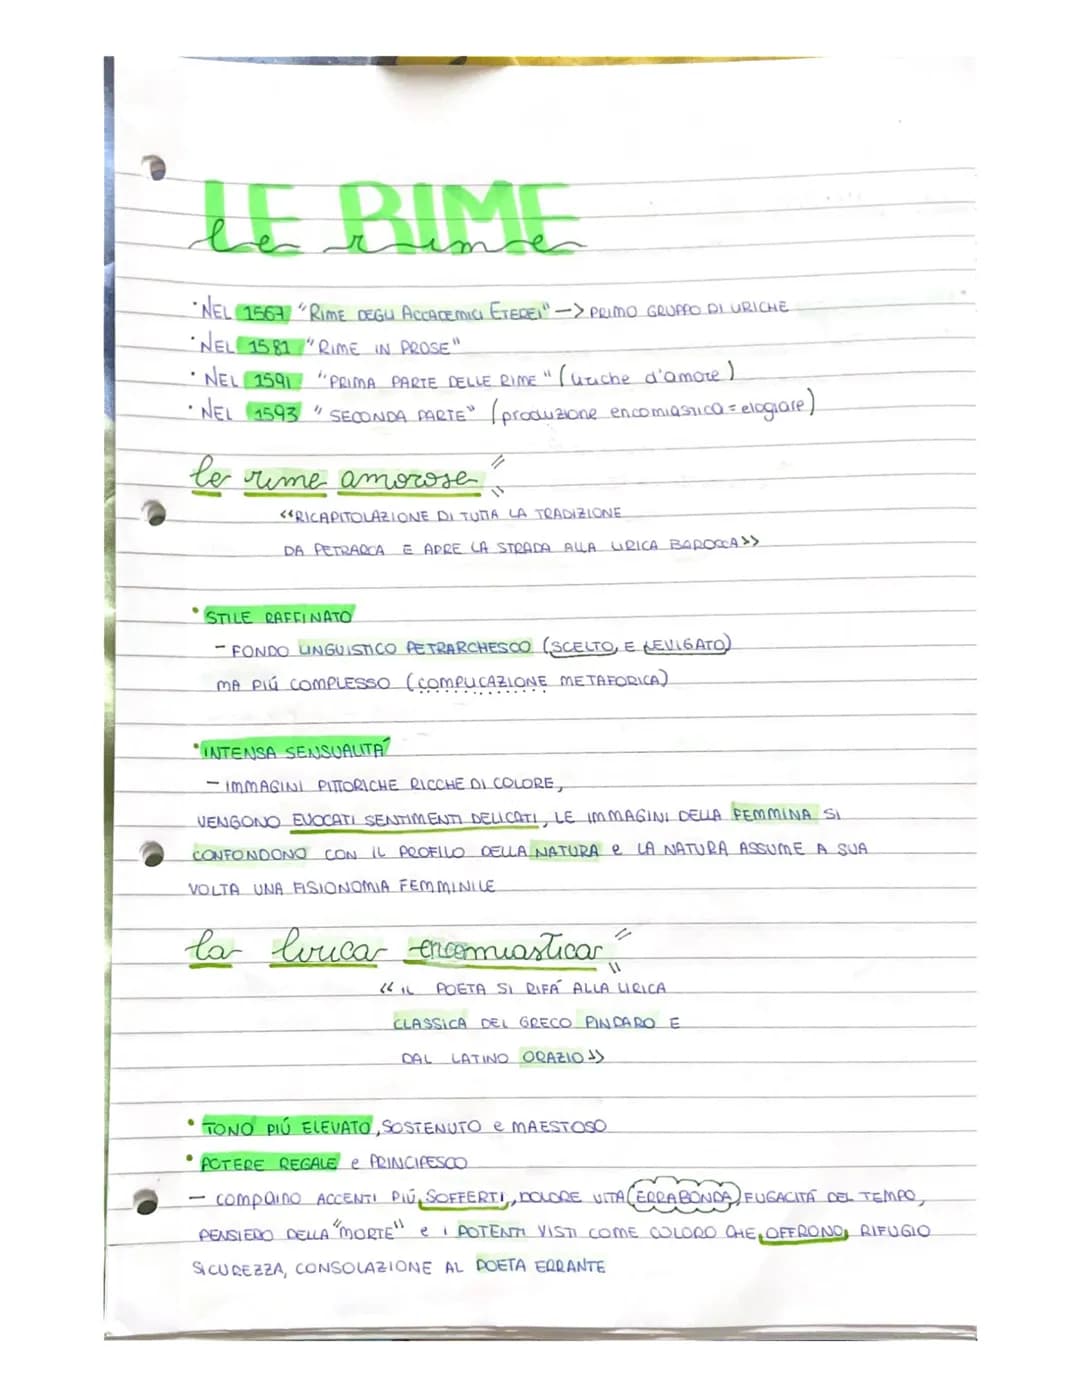 LE RIME
le rime
·NEL 1567 "RIME DEGLI ACCADEMICI ETEREI" -> PRIMO GRUPPO DI LIRICHE
·NEL 1581 "RIME IN PROSE"
·NEL 1591 "PRIMA PARTE DELLE RIME" (liriche d'amore)
·NEL 1593 "SECONDA PARTE" (produzione encomiastica = elogiare)
le rime amorose
«RICAPITOLAZIONE DI TUTTA LA TRADIZIONE
DA PETRARCA E APRE LA STRADA ALLA LIRICA BAROCCA»
• STILE RAFFINATO
- FONDO LINGUISTICO PETRARCHESCO (SCELTO, E LEVIGATO)
MA PIÚ COMPLESSO (COMPLICAZIONE METAFORICA)
• INTENSA SENSUALITÁ
- IMMAGINI PITTORICHE RICCHE DI COLORE,
VENGONO EVOCATI SENTIMENTI DELICATI, LE IMMAGINI DELLA FEMMINA SI
CONFONDONO CON IL PROFILO DELLA NATURA e LA NATURA ASSUME A SUA
VOLTA UNA FISIONOMIA FEMMINILE
la lirica encomiastica
«IL POETA SI RIFÁ ALLA LIRICA
CLASSICA DEL GRECO PINDARO E
DAL LATINO ORAZIO»
• TONO PIÚ ELEVATO, SOSTENUTO e MAESTOSO
• POTERE REGALE e PRINCIPESCO
- compaino ACCENTI PIÚ SOFFERTI, DOLORE VITA ERRABONDA, FUGACITÁ DEL TEMPO,
PENSIERO DELLA "MORTE" e i POTENTI VISTI COME COLORO CHE OFFRONO RIFUGIO
SICUREZZA, CONSOLAZIONE AL POETA ERRANTE